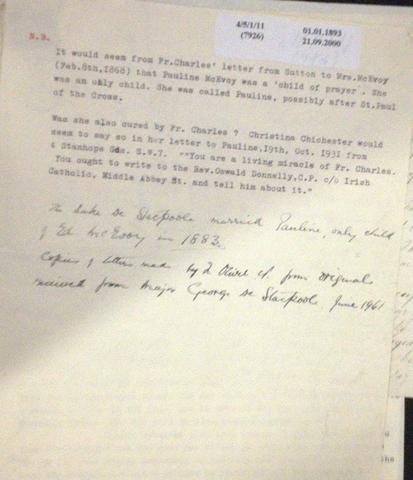 4/5/1/11
(7926)
01.01.1893
21.09.2000
N.B.
It would seem from Fr.Charles' letter from Sutton to Mrs.McEvoy
(Feb.8th,1868) that Pauline McEvoy was a 'child of prayer'. She
was an only child. She was called Pauline, possibly after St.Paul
of the Cross.
Was she also cured by Fr. Charles ? Christina Chichester would
seem to say so in her letter to Pauline,19th, Oct. 1931 from
4 Stanhope Gds. S.W.7. "You are a living miracle of Fr. Charles.
You ought to write to the Rev.Oswald Donnelly,C.P. c/o Irish
Catholic, Middle Abbey St. and tell him about it."
The Duke de Stacpoole married Pauline, only child
of Ed. McEvoy in 1883.
Copies of letters made by Fr Oliver CP. from originals
received from Major George de Stacpoole June 1961